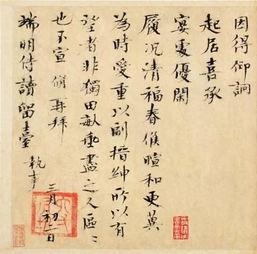 因得仰詗
起居喜承
宴處優閑
履況清福春候暄和更冀
為時愛重以副搢紳所以有
望者非獨田畝垂盡之人區〻
也不宣脩再拜
端明侍讀留臺執事
三月初二日